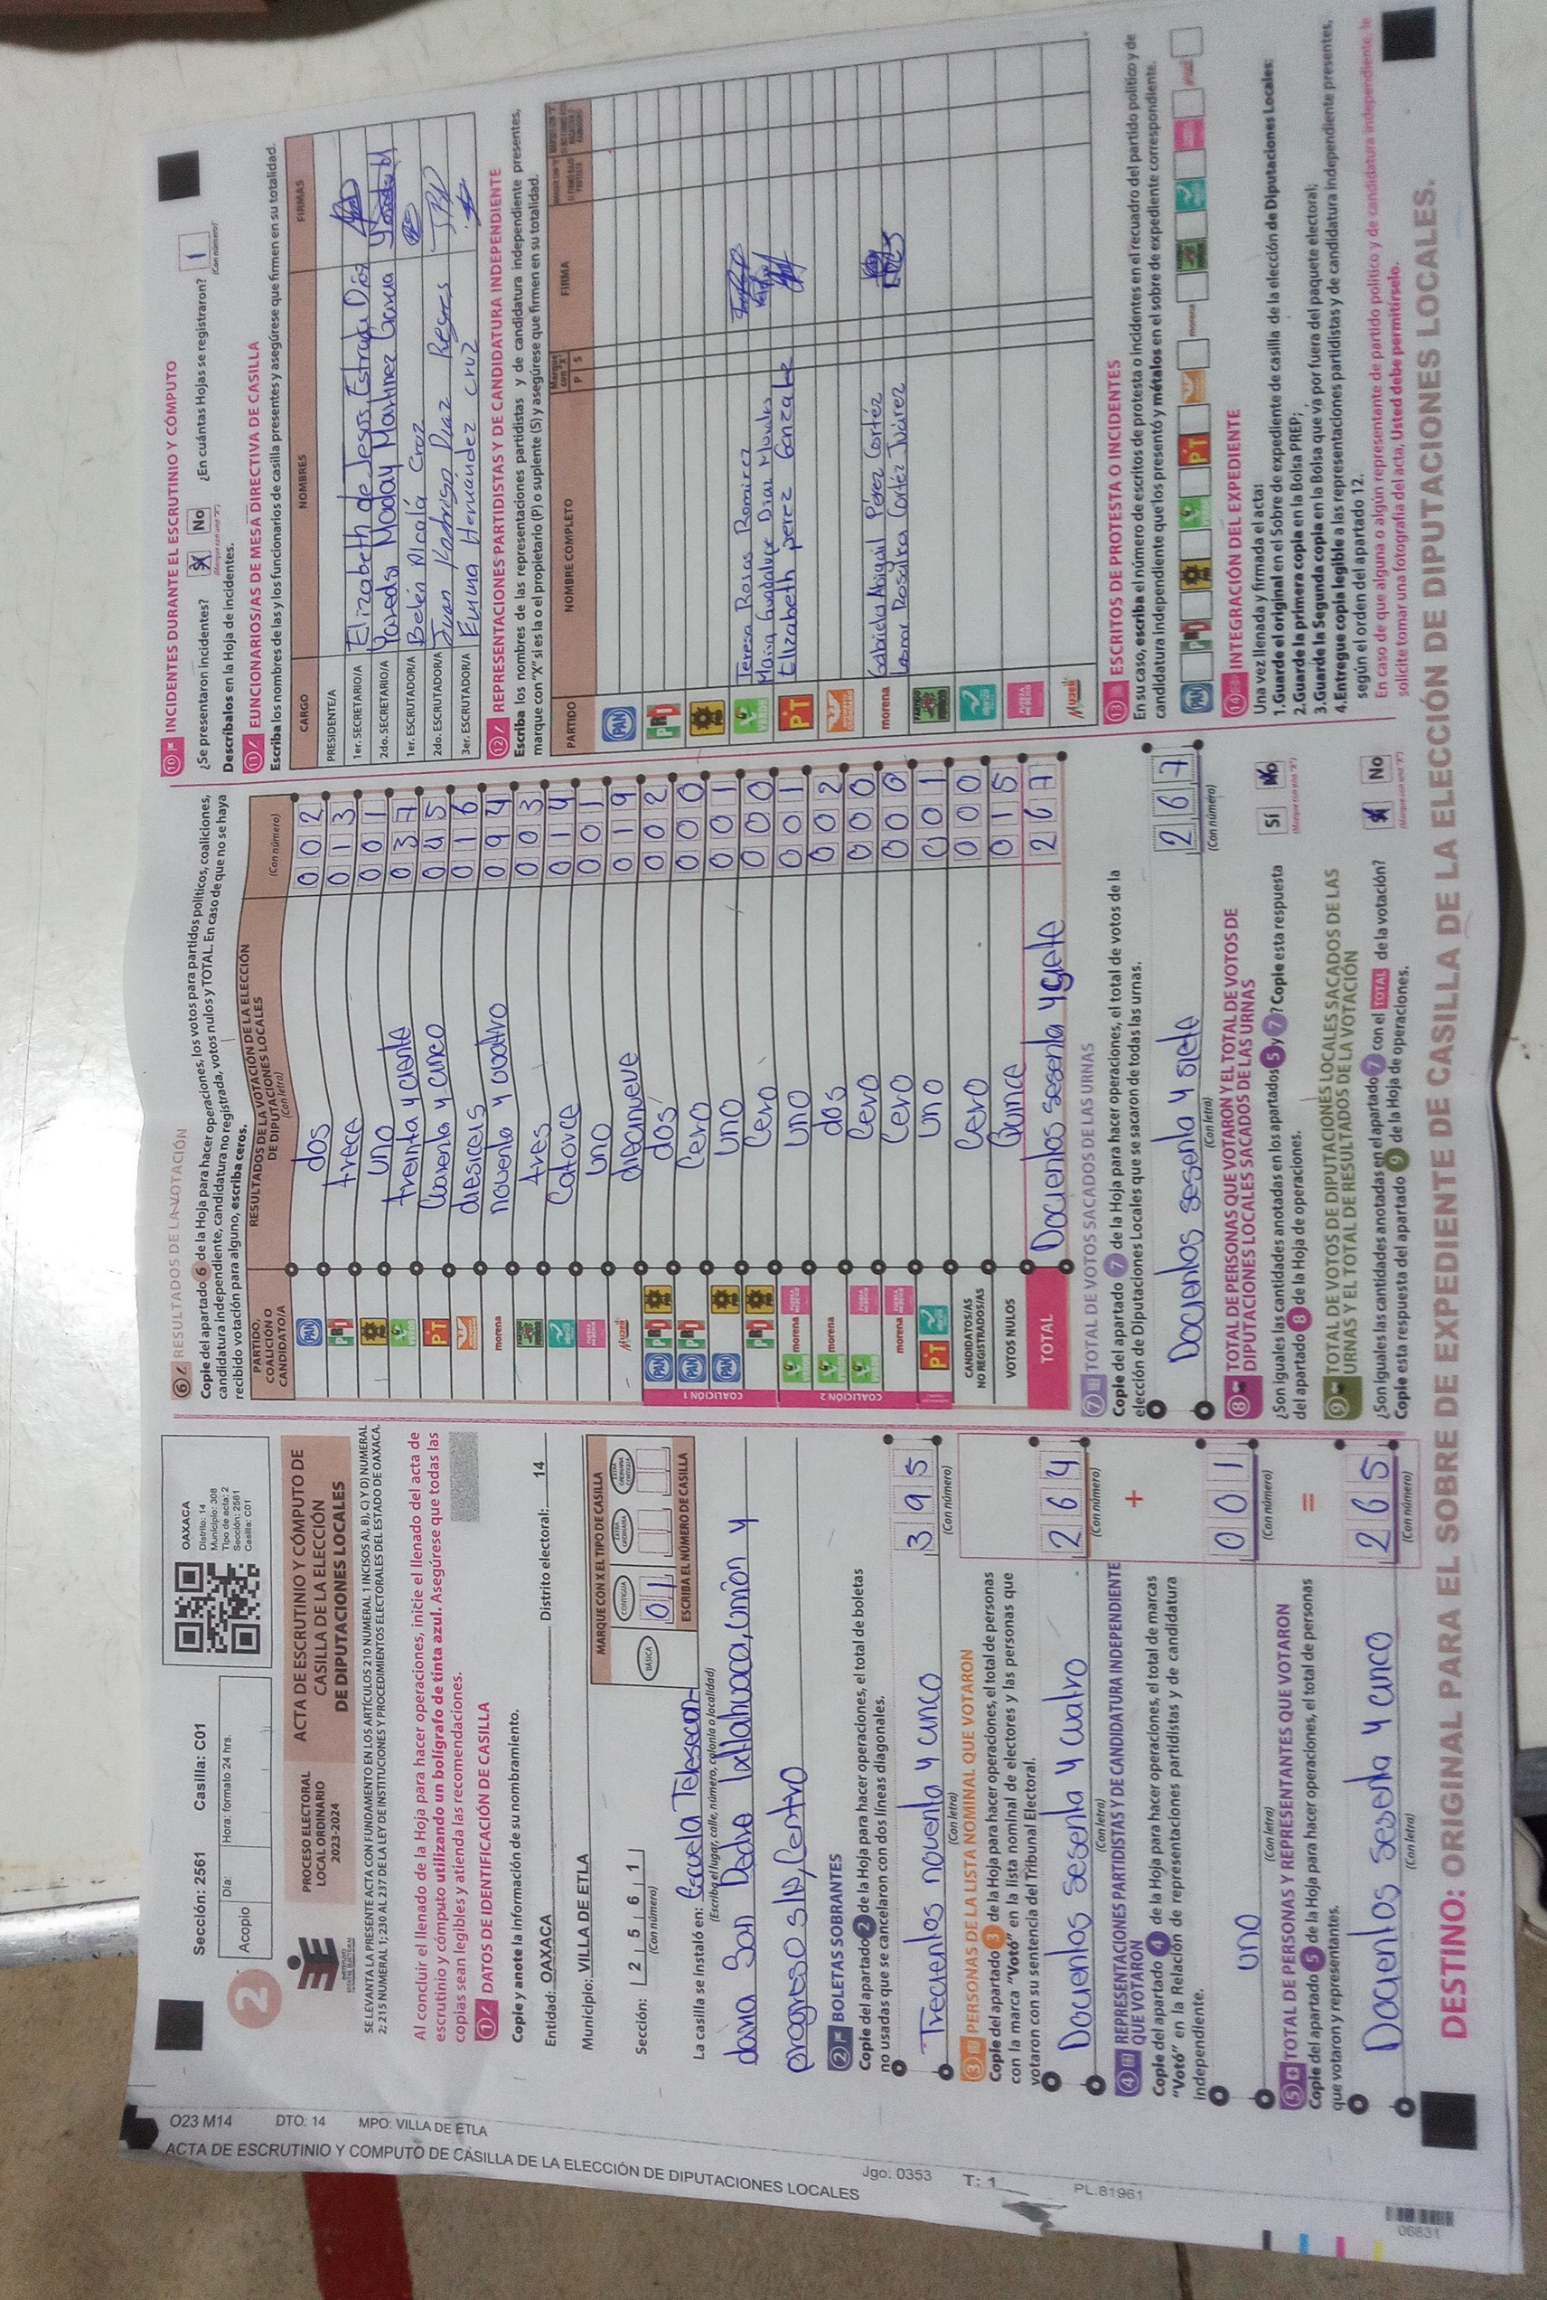 O23 M14
DTO: 14
MPO: VILLA DE ETLA
ACTA DE ESCRUTINIO Y COMPUTO DE CASILLA DE LA ELECCIÓN DE DIPUTACIONES LOCALES
Jgo. 0353
T: 1
PL.81961
06831
Sección: 2561 Casilla: C01
2
Acopio
Día:
Hora: formato 24 hrs.
OAXACA
Distrito: 14
Municipio: 308
Tipo de acta: 2
Sección: 2561
Casilla: C01
PROCESO ELECTORAL
LOCAL ORDINARIO
2023-2024
ACTA DE ESCRUTINIO Y CÓMPUTO DE
CASILLA DE LA ELECCIÓN
DE DIPUTACIONES LOCALES
SE LEVANTA LA PRESENTE ACTA CON FUNDAMENTO EN LOS ARTÍCULOS 210 NUMERAL 1 INCISOS A), B), C) Y D) NUMERAL
2; 215 NUMERAL 1; 230 AL 237 DE LA LEY DE INSTITUCIONES Y PROCEDIMIENTOS ELECTORALES DEL ESTADO DE OAXACA.
Al concluir el llenado de la Hoja para hacer operaciones, inicie el llenado del acta de
escrutinio y cómputo utilizando un bolígrafo de tinta azul. Asegúrese que todas las
copias sean legibles y atienda las recomendaciones.
1 DATOS DE IDENTIFICACIÓN DE CASILLA
Copie y anote la información de su nombramiento.
Entidad: OAXACA Distrito electoral: 14
Municipio: VILLA DE ETLA
Sección: 2 5 6 1
(Con número)
MARQUE CON X EL TIPO DE CASILLA
BÁSICA
CONTIGUA
EXTRA ORDINARIA
EXTRA ORDINARIA CONTIGUA
01
ESCRIBA EL NÚMERO DE CASILLA
La casilla se instaló en: Escuela Telesecun-
(Escriba el lugar, calle, número, colonia o localidad)
daria San Pedro Ixtlahuaca, Unión y
progreso s/n, Centro
2 BOLETAS SOBRANTES
Copie del apartado 2 de la Hoja para hacer operaciones, el total de boletas
no usadas que se cancelaron con dos líneas diagonales.
Trecientos noventa y cinco 3 9 5
(Con letra) (Con número)
3 PERSONAS DE LA LISTA NOMINAL QUE VOTARON
Copie del apartado 3 de la Hoja para hacer operaciones, el total de personas
con la marca "Votó" en la lista nominal de electores y las personas que
votaron con su sentencia del Tribunal Electoral.
Docientos sesenta y cuatro 2 6 4
(Con letra) (Con número)
+
4 REPRESENTACIONES PARTIDISTAS Y DE CANDIDATURA INDEPENDIENTE
QUE VOTARON
Copie del apartado 4 de la Hoja para hacer operaciones, el total de marcas
"Votó" en la Relación de representaciones partidistas y de candidatura
independiente.
uno 0 0 1
(Con letra) (Con número)
=
5 TOTAL DE PERSONAS Y REPRESENTANTES QUE VOTARON
Copie del apartado 5 de la Hoja para hacer operaciones, el total de personas
que votaron y representantes.
Docientos sesenta y cinco 2 6 5
(Con letra) (Con número)
6 RESULTADOS DE LA VOTACIÓN
Copie del apartado 6 de la Hoja para hacer operaciones, los votos para partidos políticos, coaliciones,
candidatura independiente, candidatura no registrada, votos nulos y TOTAL. En caso de que no se haya
recibido votación para alguno, escriba ceros.
PARTIDO,
COALICIÓN O
CANDIDATO/A
RESULTADOS DE LA VOTACIÓN DE LA ELECCIÓN
DE DIPUTACIONES LOCALES
(Con letra)
(Con número)
PAN dos 0 0 2
PRI trece 0 1 3
PRD uno 0 0 1
VERDE treinta y ciente 0 3 7
PT Cuarenta y cinco 0 4 5
diesiceis 0 1 6
morena noventa y cuatro 0 9 4
tres 0 0 3
Catorce 0 1 4
uno 0 0 1
Muzeli diecinueve 0 1 9
COALICIÓN 1
PAN PRI PRD dos 0 0 2
PAN PRI Cero 0 0 0
PAN PRD uno 0 0 1
PRI PRD Cero 0 0 0
COALICIÓN 2
VERDE morena FUERZA MÉXICO uno 0 0 1
VERDE morena dos 0 0 2
VERDE FUERZA MÉXICO Cero 0 0 0
morena FUERZA MÉXICO Cero 0 0 0
PT uno 0 0 1
CANDIDATOS/AS
NO REGISTRADOS/AS Cero 0 0 0
VOTOS NULOS Quince 0 1 5
TOTAL Docientos sesenta y siete 2 6 7
7 TOTAL DE VOTOS SACADOS DE LAS URNAS
Copie del apartado 7 de la Hoja para hacer operaciones, el total de votos de la
elección de Diputaciones Locales que se sacaron de todas las urnas.
Docientos sesenta y siete 2 6 7
(Con letra) (Con número)
8 TOTAL DE PERSONAS QUE VOTARON Y EL TOTAL DE VOTOS DE
DIPUTACIONES LOCALES SACADOS DE LAS URNAS
¿Son iguales las cantidades anotadas en los apartados 5 y 7? Copie esta respuesta
del apartado 8 de la Hoja de operaciones.
Sí No
(Marque con una "X")
9 TOTAL DE VOTOS DE DIPUTACIONES LOCALES SACADOS DE LAS
URNAS Y EL TOTAL DE RESULTADOS DE LA VOTACIÓN
¿Son iguales las cantidades anotadas en el apartado 7 con el TOTAL de la votación?
Copie esta respuesta del apartado 9 de la Hoja de operaciones.
Sí No
(Marque con una "X")
10 INCIDENTES DURANTE EL ESCRUTINIO Y CÓMPUTO
¿Se presentaron incidentes? Sí No ¿En cuántas Hojas se registraron? 1
(Marque con una "X") (Con número)
Descríbalos en la Hoja de incidentes.
11 FUNCIONARIOS/AS DE MESA DIRECTIVA DE CASILLA
Escriba los nombres de las y los funcionarios de casilla presentes y asegúrese que firmen en su totalidad.
CARGO NOMBRES FIRMAS
PRESIDENTE/A Elizabeth de Jesus Estrada Diaz
1er. SECRETARIO/A Yaredsi Maday Martinez Garcia
2do. SECRETARIO/A Belén Alcalá Cruz
1er. ESCRUTADOR/A Juan Rodrigo Diaz Reyes
2do. ESCRUTADOR/A Emma Hernández Cruz
3er. ESCRUTADOR/A
12 REPRESENTACIONES PARTIDISTAS Y DE CANDIDATURA INDEPENDIENTE
Escriba los nombres de las representaciones partidistas y de candidatura independiente presentes,
marque con "X" si es la o el propietario (P) o suplente (S) y asegúrese que firmen en su totalidad.
PARTIDO NOMBRE COMPLETO Marque con "X" P S FIRMA
PAN
PRI
PRD
VERDE Teresa Rosas Ramirez
Maria Guadalupe Diaz Morales
PT Elizabeth perez Gonzalez
morena Gabriela Abigail Pérez Cortéz
Leonor Rosalba Cortéz Juárez
Muzeli
13 ESCRITOS DE PROTESTA O INCIDENTES
En su caso, escriba el número de escritos de protesta o incidentes en el recuadro del partido político y de
candidatura independiente que los presentó y métalos en el sobre de expediente correspondiente.
PAN PRI PRD VERDE PT morena
14 INTEGRACIÓN DEL EXPEDIENTE
Una vez llenada y firmada el acta:
1.Guarde el original en el Sobre de expediente de casilla de la elección de Diputaciones Locales;
2.Guarde la primera copia en la Bolsa PREP;
3.Guarde la Segunda copia en la Bolsa que va por fuera del paquete electoral;
4.Entregue copia legible a las representaciones partidistas y de candidatura independiente presentes,
según el orden del apartado 12.
En caso de que alguna o algún representante de partido político y de candidatura independiente, le
solicite tomar una fotografía del acta, Usted debe permitírselo.
DESTINO: ORIGINAL PARA EL SOBRE DE EXPEDIENTE DE CASILLA DE LA ELECCIÓN DE DIPUTACIONES LOCALES.